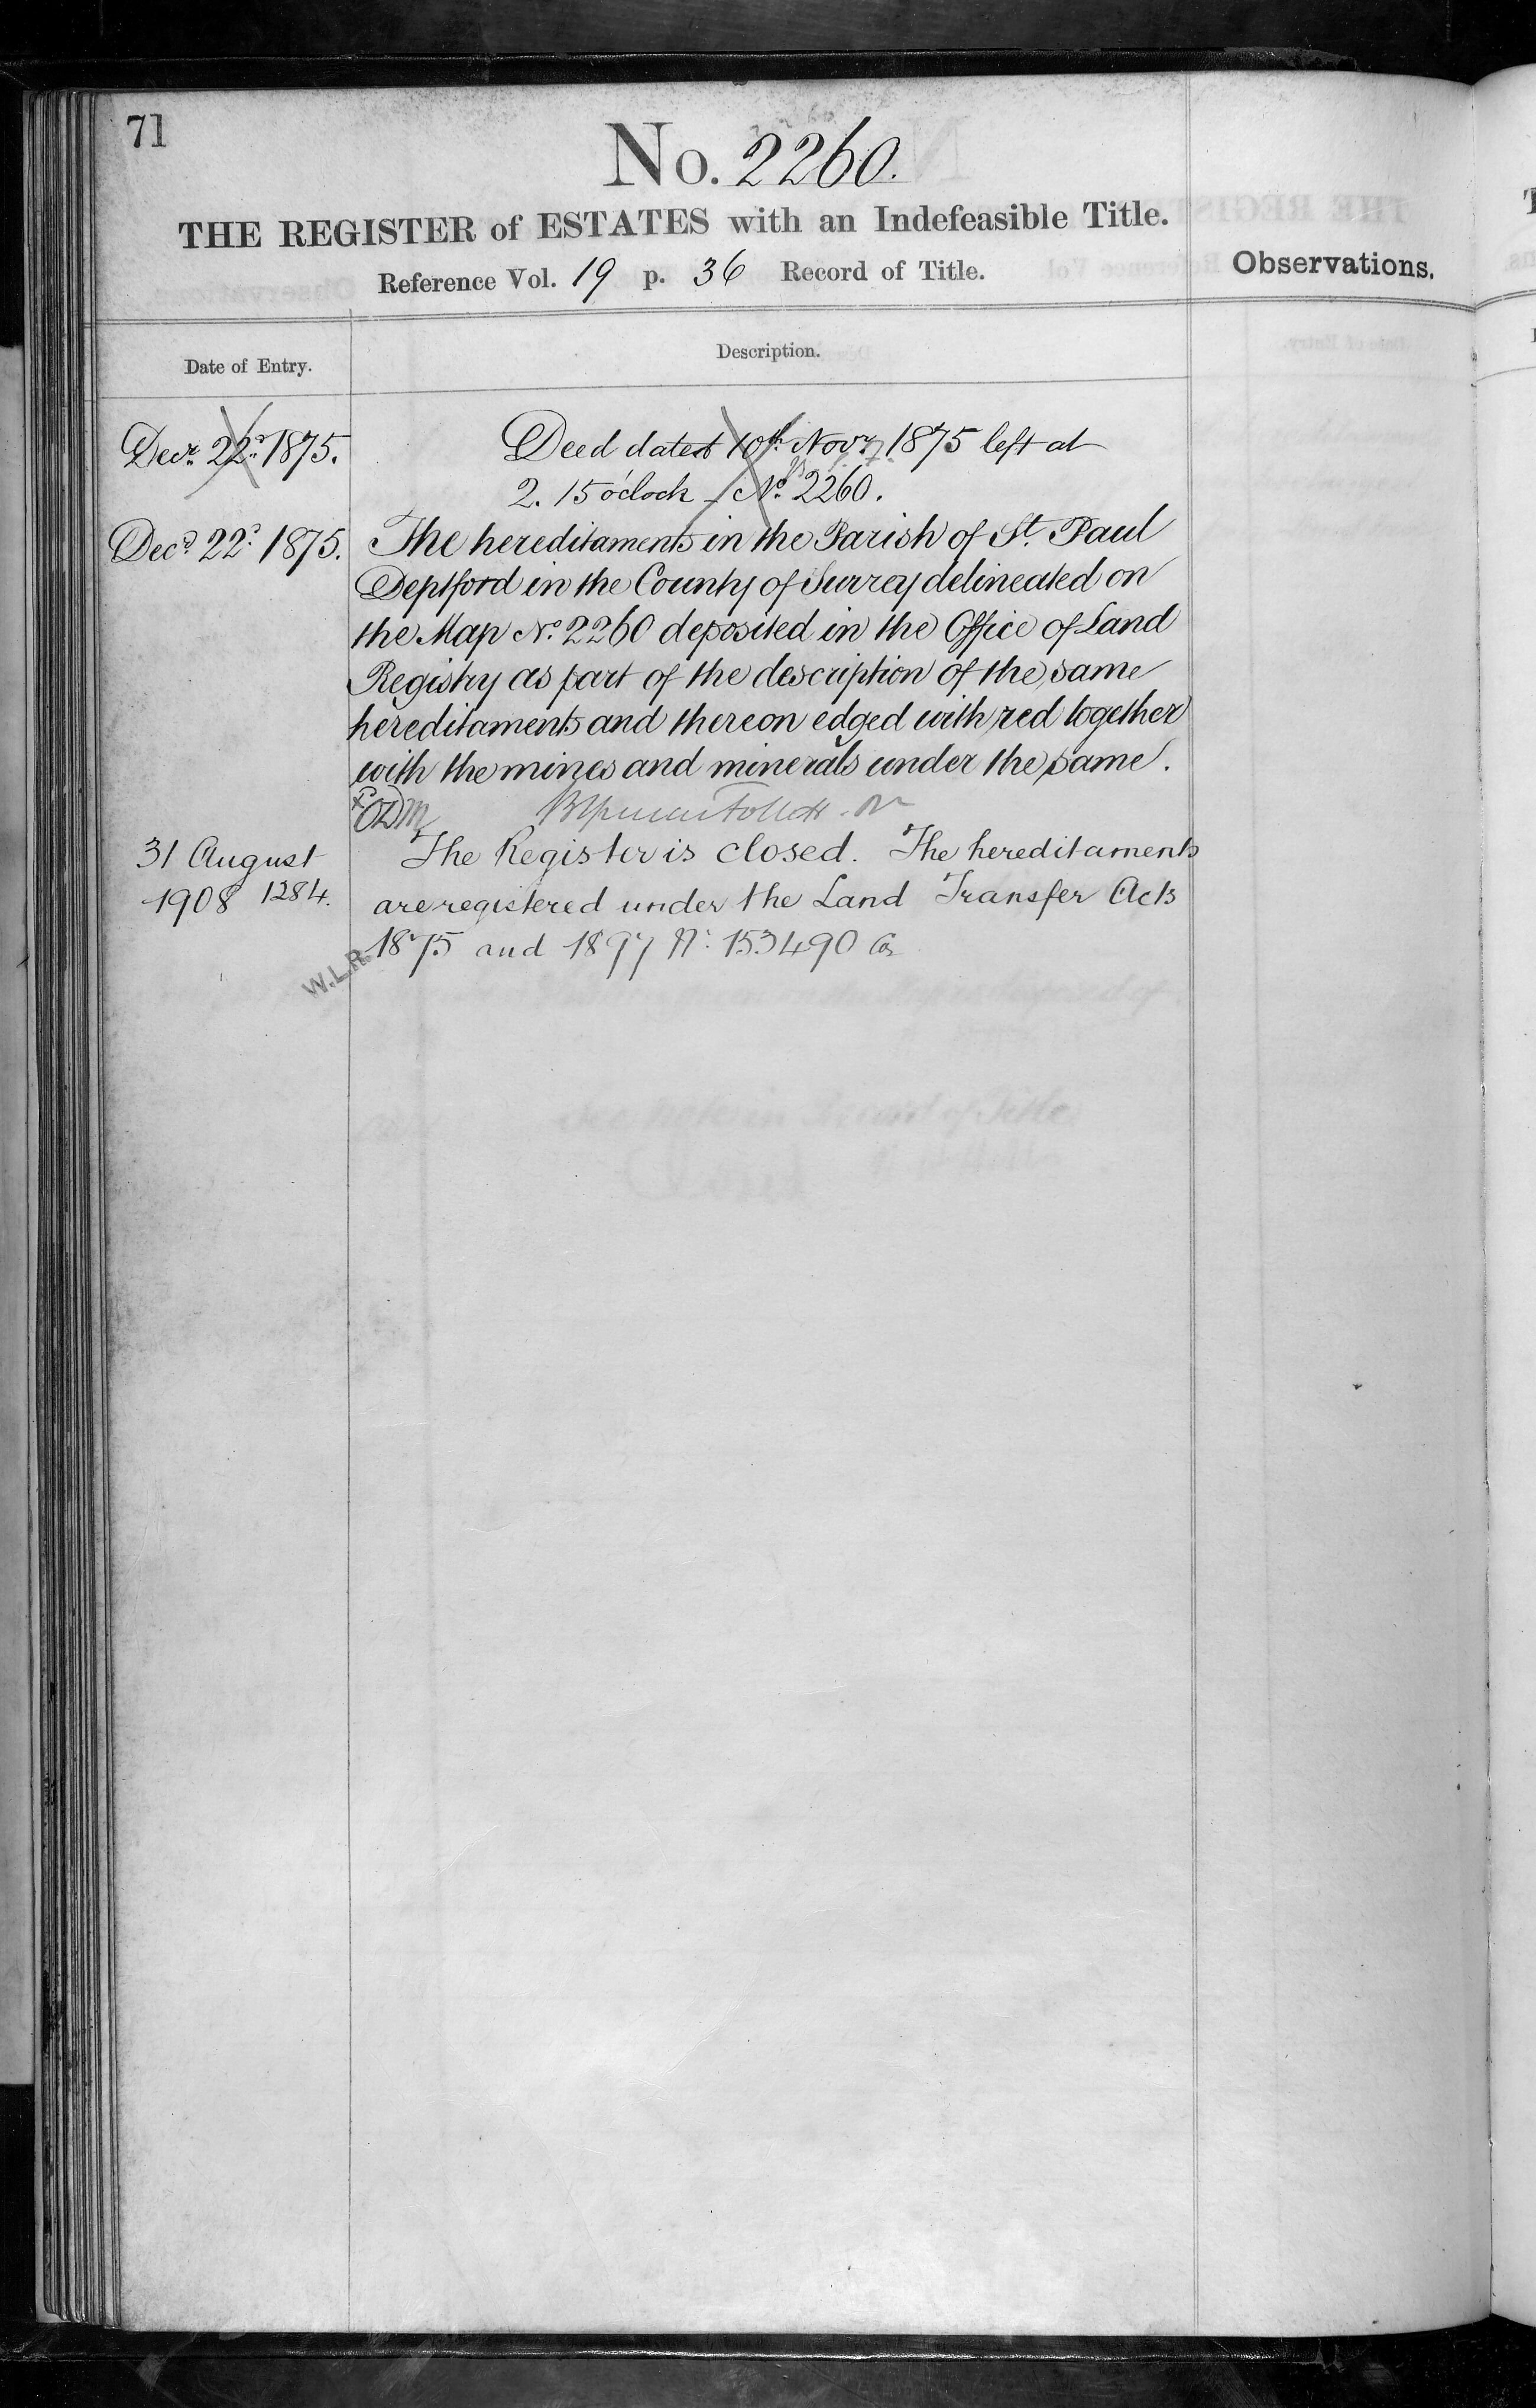 71
No. 2260.
THE REGISTER of ESTATES with an Indefeasible Title.
Reference Vol. 19 p. 36 Record of Title.
Observations.
Date of Entry.
Description.
Decr. 22d. 1875.
Deed dated 10th. Novr. 1875 left at
2. 15 o'clock - No. 2260.
Decr. 22d. 1875.
The hereditaments in the Parish of St. Paul
Deptford in the County of Surrey delineated on
the Map No. 2260 deposited in the Office of Land
Registry as part of the description of the same
hereditaments and thereon edged with red together
with the mines and minerals under the same.
Follett
31 August
1908 1284.
The Register is closed. The hereditaments
are registered under the Land Transfer Acts
1875 and 1897 No. 153490
W.L.R.